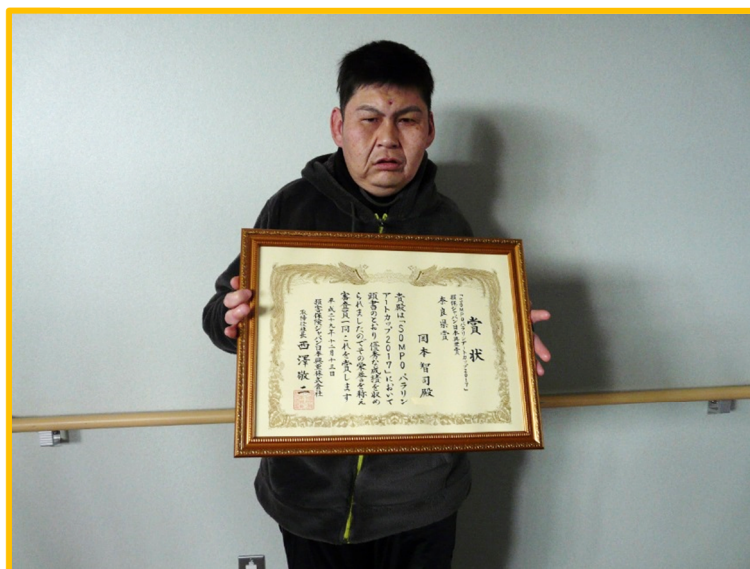 賞状
「SOMPOパラリンアートカップ2017」
損保ジャパン日本興亜賞
奈良県賞
岡本智司殿
貴殿は「SOMPOパラリン
アートカップ2017」において
頭書のとおり優秀な成績を収め
られましたのでその栄誉を称え
審査員一同これを賞します
平成二十九年十二月十三日
損害保険ジャパン日本興亜株式会社
取締役社長
西澤敬二